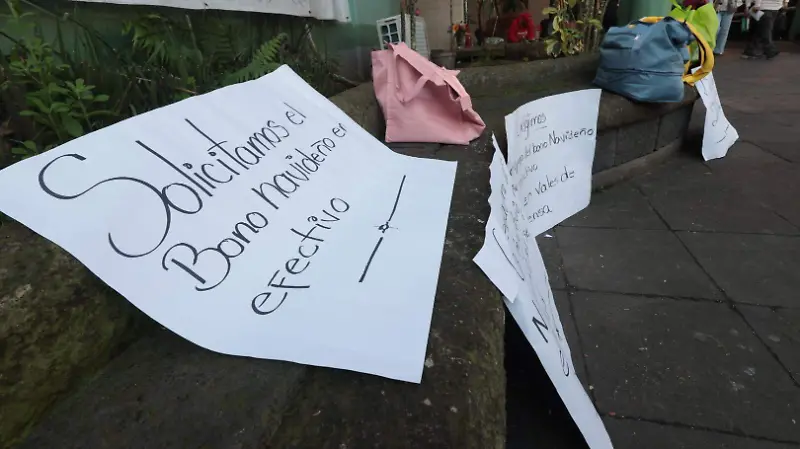 Solicitamos el
Bono navideño en
efectivo
Exigimos
bono Navideño
vales de